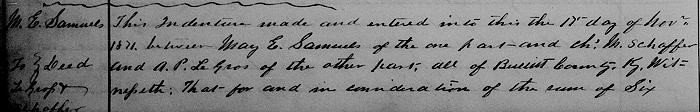 M. E. Samuels
To } Deed
Le Gros &
Schoffer
This Indenture made and entered into this the 17th day of Novr.
1871. between May E. Samuels of the one part and Ch. M. Schoffer
and A. P. Le Gros of the other part, all of Bullitt County, Ky. Wit-
nesseth; That for and in consideration of the sum of Six